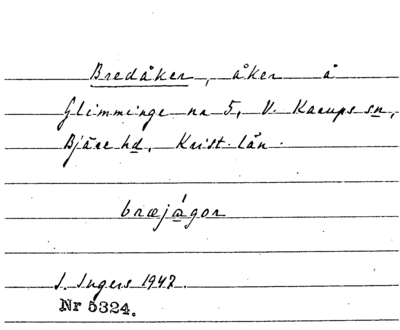 Bredåker, åker å
Glimminge nr 5, V. Karups sn,
Bjäre hd, Krist. län.
bræjágor
I. Ingers 1947.
Nr 5324.